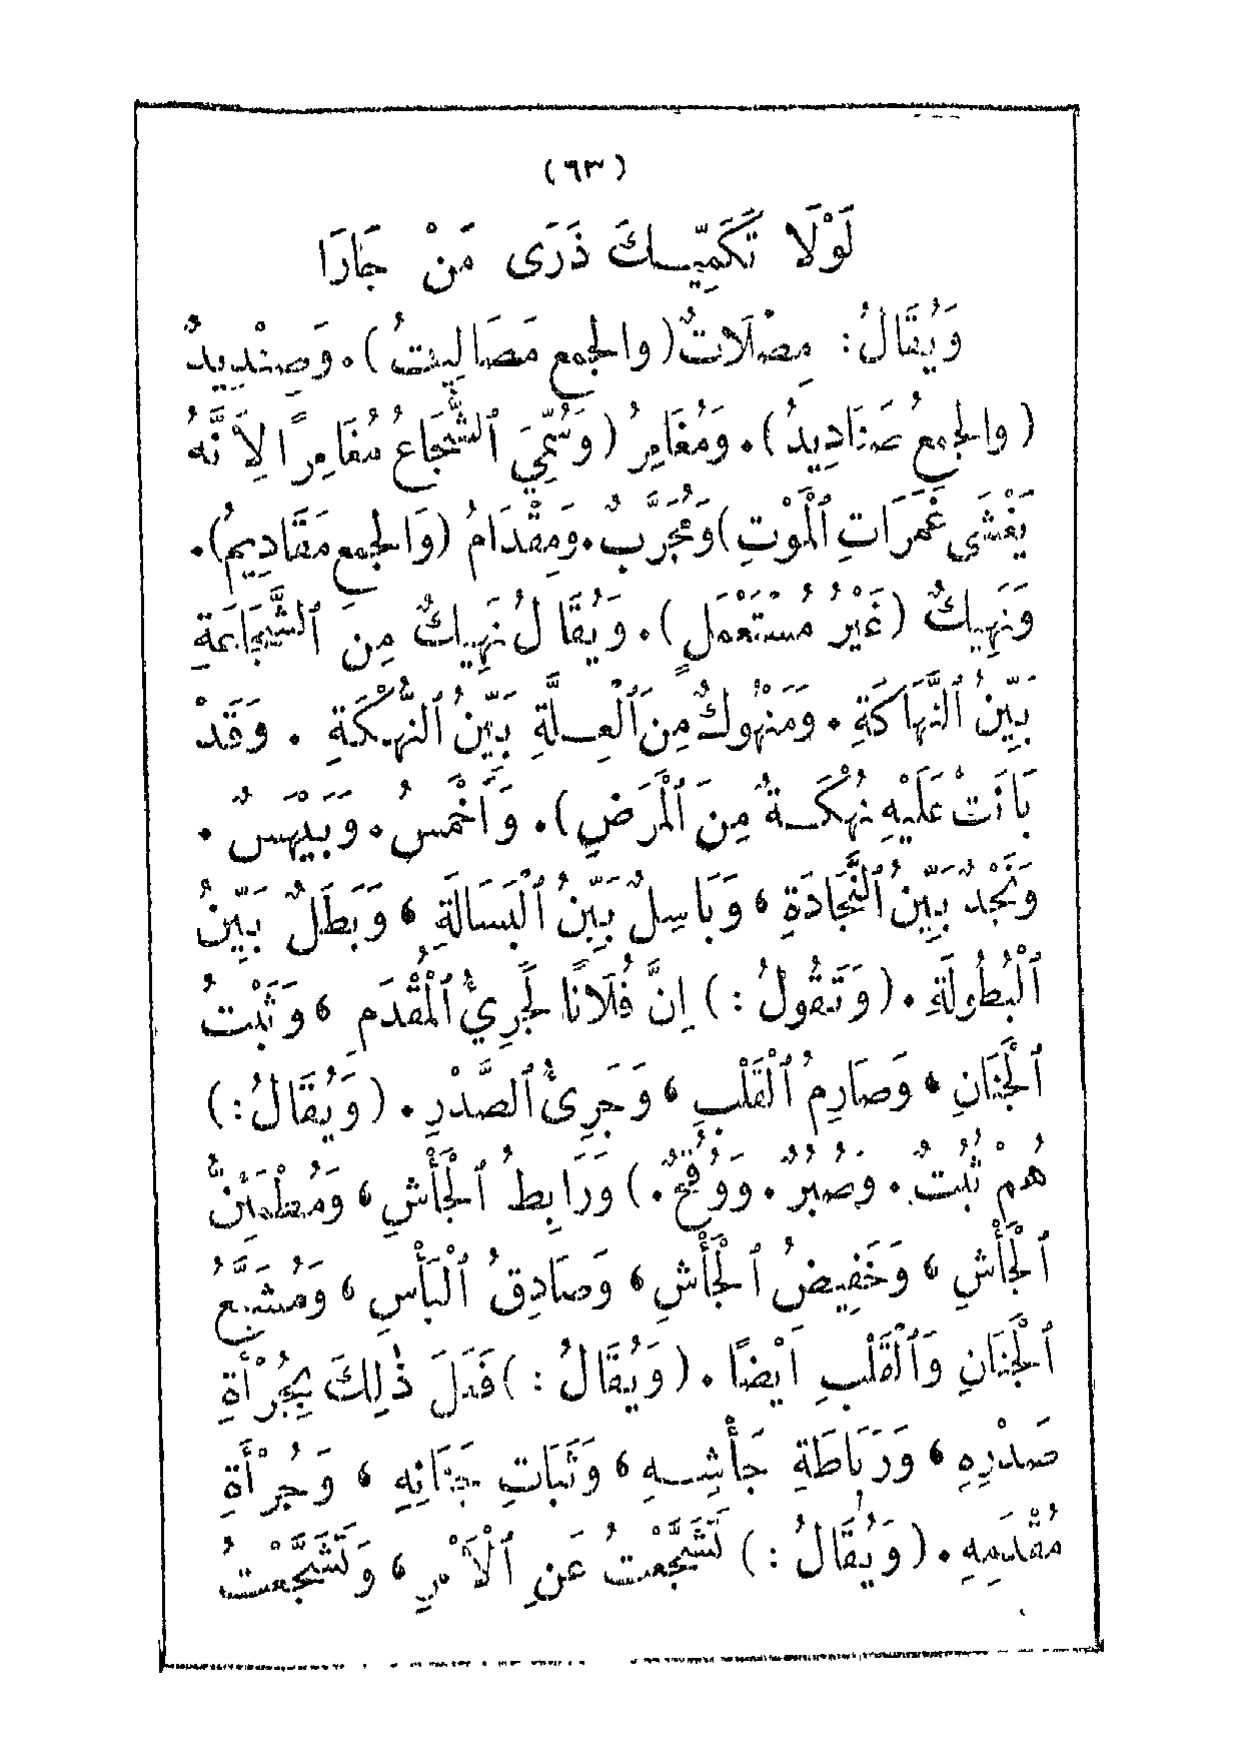 (٦٣)
لَوْلَا تَكَمِّيكَ ذَرَى مَنْ جَارَا
وَيُقَالُ: مِصْلَاتٌ (والجمع مَصَالِيتُ). وَصِنْدِيدٌ
(والجمعُ صَنَادِيدُ). وَمُغَامِرُ (وَسُمِّيَ ٱلشُّجَاعُ مُغَامِرًا لِأَنَّهُ
يَغْشَى غَمَرَاتِ ٱلْمَوْتِ) وَمُجَرَّبٌ. وَمِقْدَامُ (وَالجمع مَقَادِيمُ).
وَنَهِيكٌ (غَيْرُ مُسْتَعْمَلٍ). وَيُقَالُ نَهِيكٌ مِنَ ٱلشَّجَاعَةِ
بَيِّنُ ٱلنَّهَاكَةِ. وَمَنْهُوكٌ مِنَ ٱلْعِلَّةِ بَيِّنُ ٱلنُّهْكَةِ. وَقَدْ
بَانَتْ عَلَيْهِ نُهْكَةٌ مِنَ ٱلْمَرَضِ). وَأَحْمَسُ. وَبَيْهَسٌ.
وَنَجْدٌ بَيِّنُ ٱلنَّجَادَةِ، وَبَاسِلٌ بَيِّنُ ٱلْبَسَالَةِ، وَبَطَلٌ بَيِّنُ
ٱلْبُطُولَةِ. (وَتَقُولُ:) إِنَّ فُلَانًا لَجَرِيُّ ٱلْمُقْدَمِ، وَثَبْتُ
ٱلْجَنَانِ، وَصَارِمُ ٱلْقَلْبِ، وَجَرِىءُ ٱلصَّدْرِ. (وَيُقَالُ:)
هُمْ ثُبُتٌ. وَصُبُرٌ. وَوُقُحٌ.) وَرَابِطُ ٱلْجَأْشِ، وَمُطْمَئِنُّ
ٱلْجَأْشِ، وَخَفِيضُ ٱلْجَأْشِ، وَصَادِقُ ٱلْبَأْسِ، وَمُشَيَّعُ
ٱلْجَنَانِ وَٱلْقَلْبِ اَيْضًا. (وَيُقَالُ:) فَعَلَ ذٰلِكَ بِجُرْأَةِ
صَدْرِهِ، وَرَبَاطَةِ جَأْشِهِ، وَثَبَاتِ جَنَانِهِ، وَجُرْأَةِ
مُقْدَمِهِ. (وَيُقَالُ:) تَشَجَّعْتُ عَنِ ٱلْأَمْرِ، وَتَشَجَّعْتُ